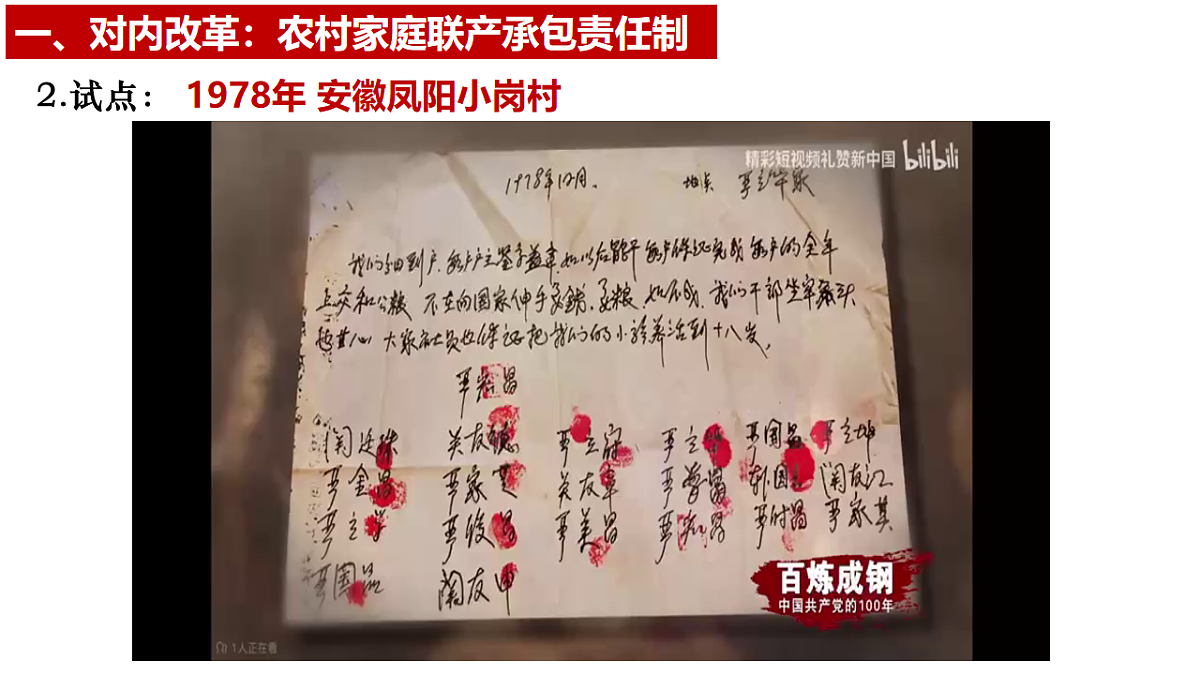 一、对内改革：农村家庭联产承包责任制
2.试点： 1978年 安徽凤阳小岗村
精彩短视频礼赞新中国 bilibili
1978年12月。 地点 严立华家
我们分田到户，每户户主签字盖章，如以后能干，每户保证完成每户的全年
上交和公粮，不在向国家伸手要钱要粮，如不成，我们干部坐牢杀头
也甘心，大家社员也保证把我们的小孩养活到十八岁。
严宏昌
关廷珠 关友德 严立符 严立华 严国昌 严立坤
严金昌 严家芝 关友章 严学昌 韩国云 关友江
严立学 严俊昌 严美昌 严宏昌 严付昌 严家其
严国品 关友申
百炼成钢
中国共产党的100年
1人正在看